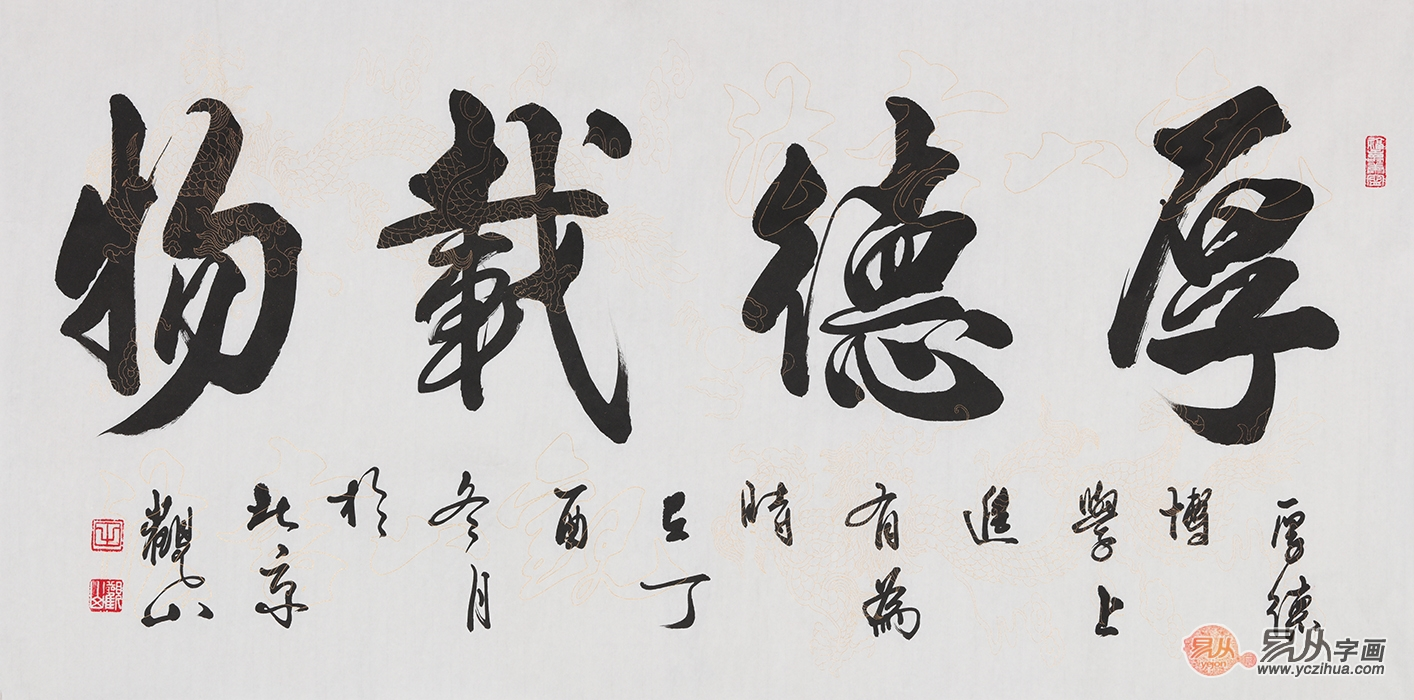 厚德載物
厚德
博
學上
進
有為
時
在丁
酉
冬月
於
北京
觀山
易从字画
www.yczihua.com